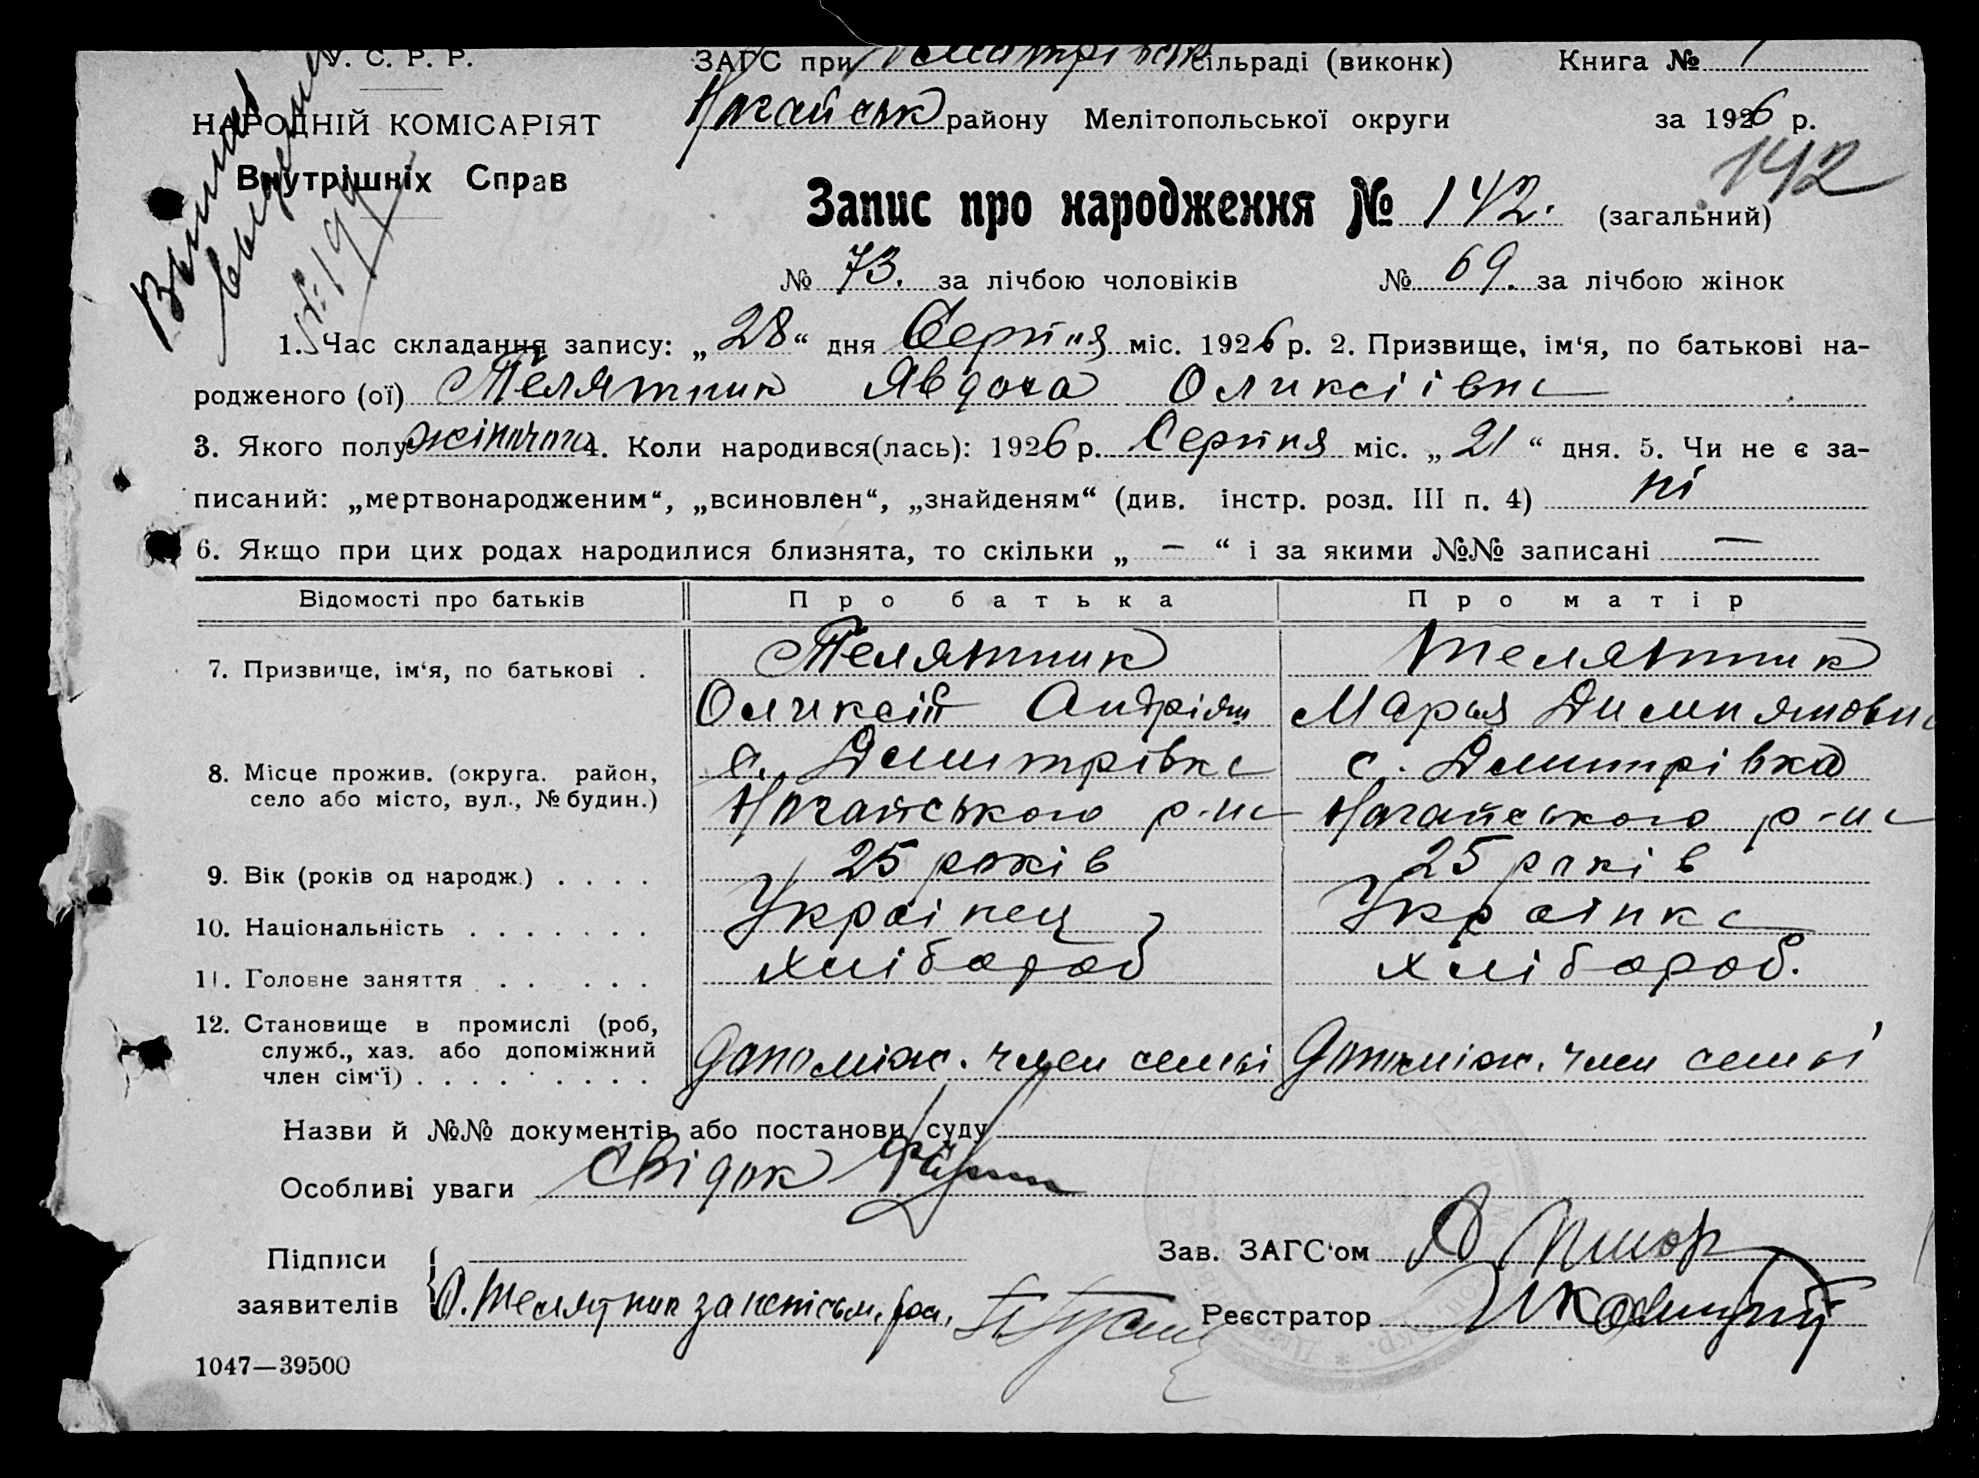 У. С. Р. Р.
ЗАГС при Дмитрівськ сільраді (виконк) Книга № 1
НАРОДНІЙ КОМІСАРІЯТ
Внутрішніх Справ
Ногайськ району Мелітопольської округи за 1926 р.
142
Запис про народження № 142. (загальний)
№ 73. за лічбою чоловіків № 69. за лічбою жінок
1. Час складання запису: „28“ дня Серпня міс. 1926 р. 2. Призвище, ім‘я, по батькові на-
родженого (ої) Телятник Явдоха Оликсіівна
3. Якого полу жіночого 4. Коли народився(лась): 1926 р. Серпня міс. „21“ дня. 5. Чи не є за-
писаний: „мертвонародженим“, „всиновлен“, „знайденям“ (див. інстр. розд. III п. 4) ні
6. Якщо при цих родах народилися близнята, то скільки „ – “ і за якими №№ записані —
Відомості про батьків Про батька Про матір
7. Призвище, ім‘я, по батькові . Телятник Телятник
Оликсій Андріян Марья Димиямовна
8. Місце прожив. (округа. район, с. Дмитрівка с. Дмитрівка
село або місто, вул., № будин.) Ногайського р-на Ногайського р-на
9. Вік (років од народж.) . . . . 25 років 25 років
10. Національність . . . . . . . Українец Українка
11. Головне заняття . . . . . . хлібороб хлібороб.
12. Становище в промислі (роб,
служб., хаз. або допоміжний
член сім‘ї) . . . . . . . . . допоміж. член семьі допоміж. член семьі
Назви й №№ документів або постанови суду
Особливі уваги Свідок
Зав. ЗАГС‘ом
Підписи
заявителів О. Телятник за
Реєстратор
1047—39500